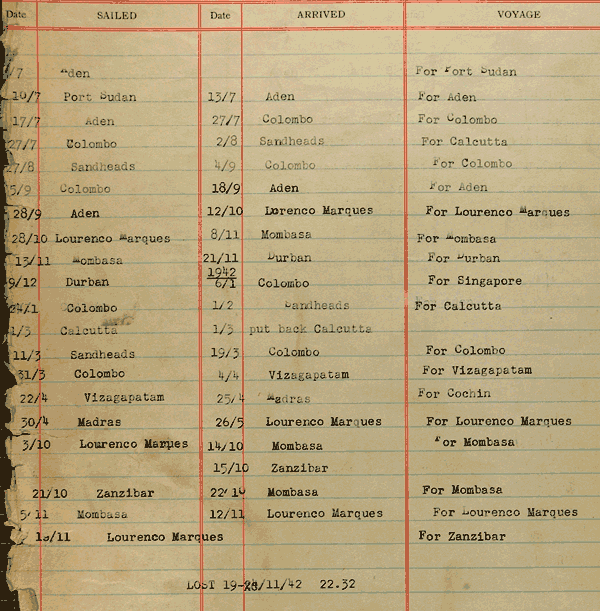 Date SAILED Date ARRIVED VOYAGE
/7 Aden For Port Sudan
10/7 Port Sudan 13/7 Aden For Aden
17/7 Aden 27/7 Colombo For Colombo
27/7 Colombo 2/8 Sandheads For Calcutta
27/8 Sandheads 4/9 Colombo For Colombo
5/9 Colombo 18/9 Aden For Aden
28/9 Aden 12/10 Lorenco Marques For Lourenco Marques
28/10 Lourenco Marques 8/11 Mombasa For Mombasa
13/11 Mombasa 21/11 Durban For Durban
1942
9/12 Durban 6/1 Colombo For Singapore
24/1 Colombo 1/2 Sandheads For Calcutta
1/3 Calcutta 1/3 put back Calcutta
11/3 Sandheads 19/3 Colombo For Colombo
31/3 Colombo 4/4 Vizagapatam For Vizagapatam
22/4 Vizagapatam 25/4 Madras For Cochin
30/4 Madras 26/5 Lourenco Marques For Lourenco Marques
3/10 Lourenco Marques 14/10 Mombasa For Mombasa
15/10 Zanzibar
21/10 Zanzibar 22/10 Mombasa For Mombasa
5/11 Mombasa 12/11 Lourenco Marques For Lourenco Marques
/11 Lourenco Marques For Zanzibar
LOST /11/42 22.32